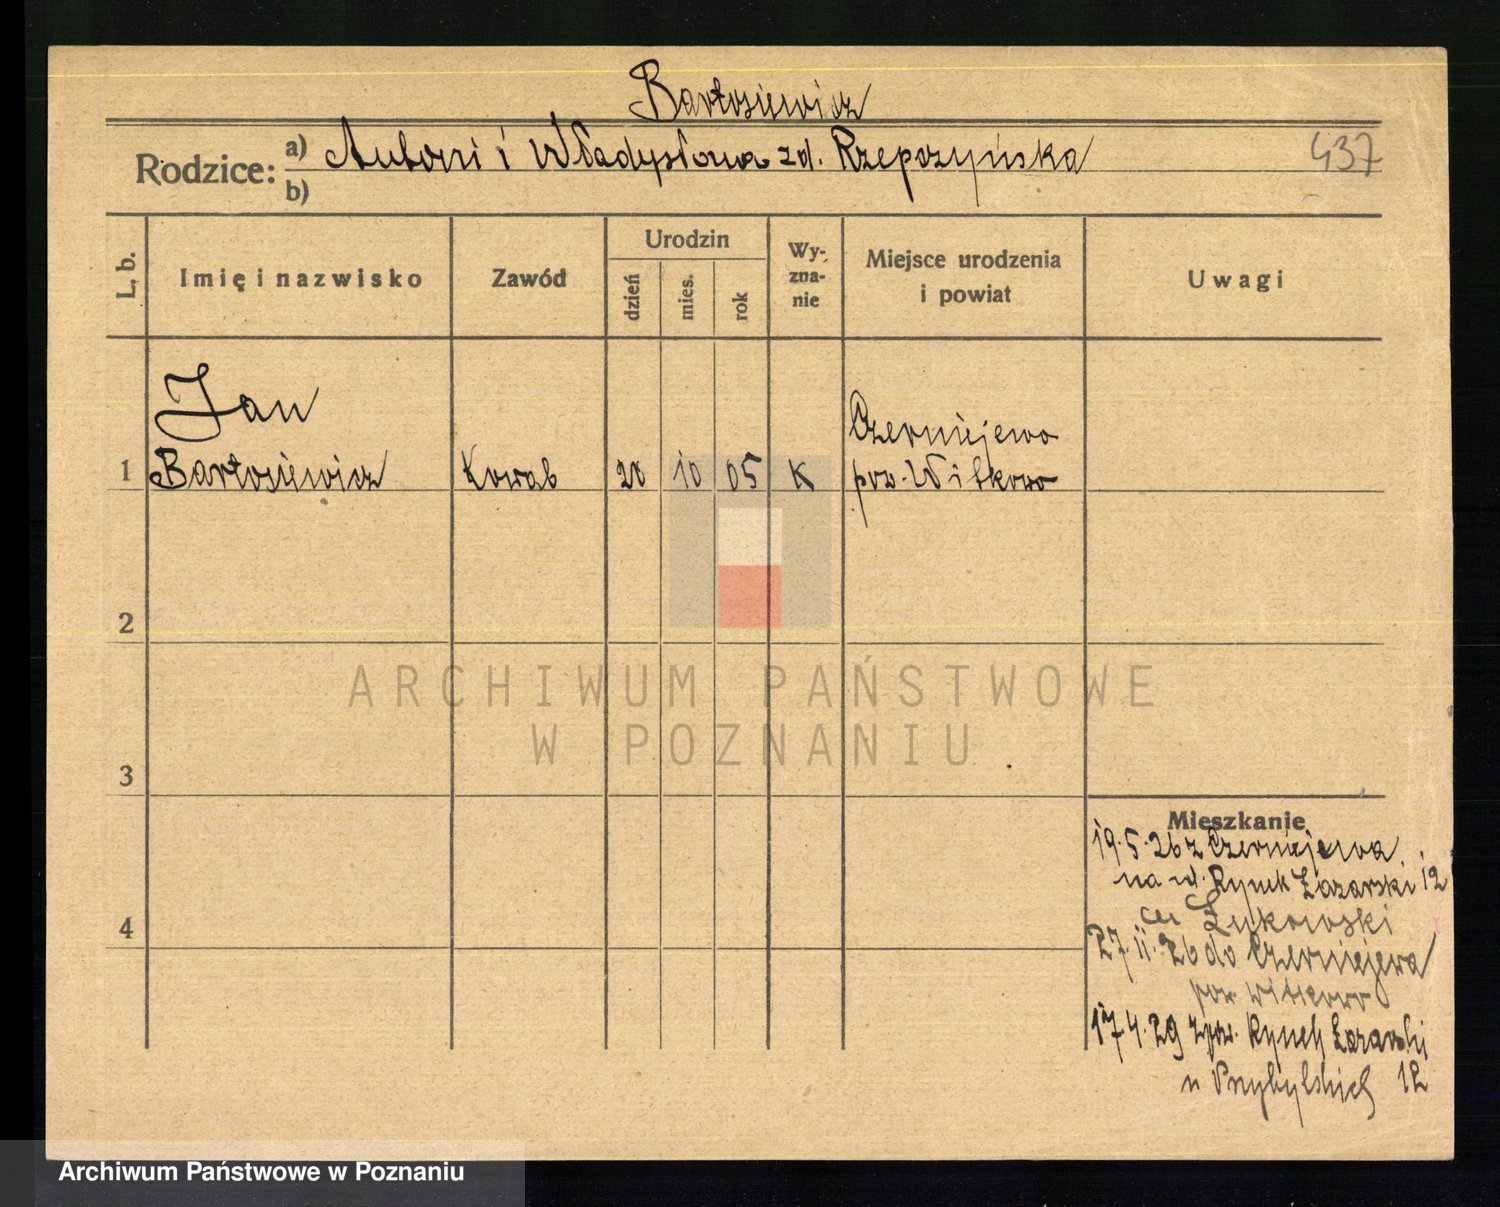 Bartosiewicz
Rodzice: a) Antoni i Władysława zd. Rzepczyńska
b)
437
L. b.
Imię i nazwisko
Zawód
Urodzin
dzień
mies.
rok
Wy-
zna-
nie
Miejsce urodzenia
i powiat
Uwagi
Jan
1 Bartosiewicz Kowal 20 10 05 K
Czerniejewo
pow. Witkowo
2
3
4
ARCHIWUM PAŃSTWOWE
W POZNANIU
Mieszkanie
19.5.26 z Czerniejewa
na ul. Rynek Łazarski 12
Łukowski
27.11.26 do Czerniejewa
pow Witkowo
17 4.29 z pow. Rynek Łazarski
u Przybylskich 12
Archiwum Państwowe w Poznaniu